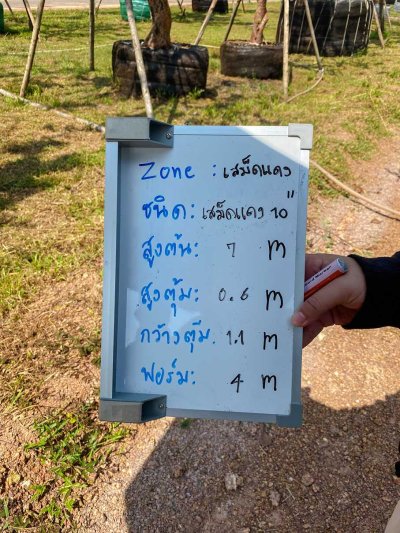 Zone : เสม็ดแดง
ชนิด : เสม็ดแดง 10"
สูงต้น: 7 m
สูงตุ้ม: 0.6 m
กว้างตุ้ม: 1.1 m
ฟอร์ม: 4 m